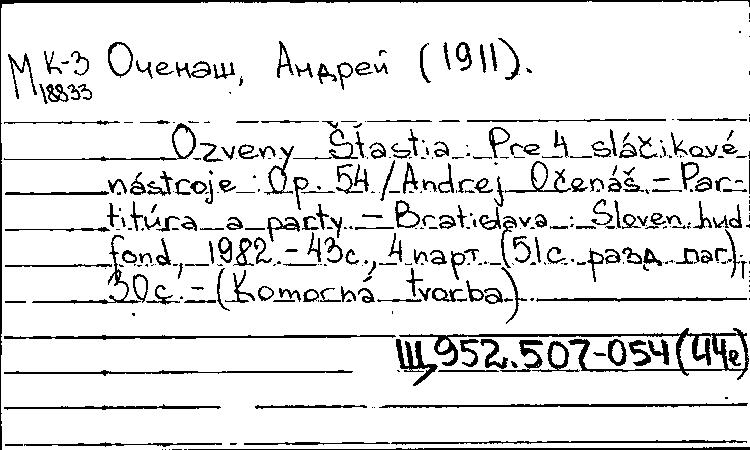 М К-3 Оченаш, Андрей (1911).
18833
Ozveny Šťastia : Pre 4 sláčikové
nástroje : Op. 54 / Andrej Očenáš. – Par-
titúra a party. – Bratislava : Sloven. hud.
fond, 1982. – 43с., 4 парт. (51с. разд. паг),
30с. – (Komorná tvorba)
Щ952.507-054(44е)